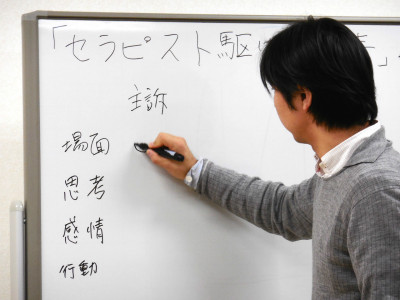 「セラピスト駆
主訴
場面
思考
感情
行動